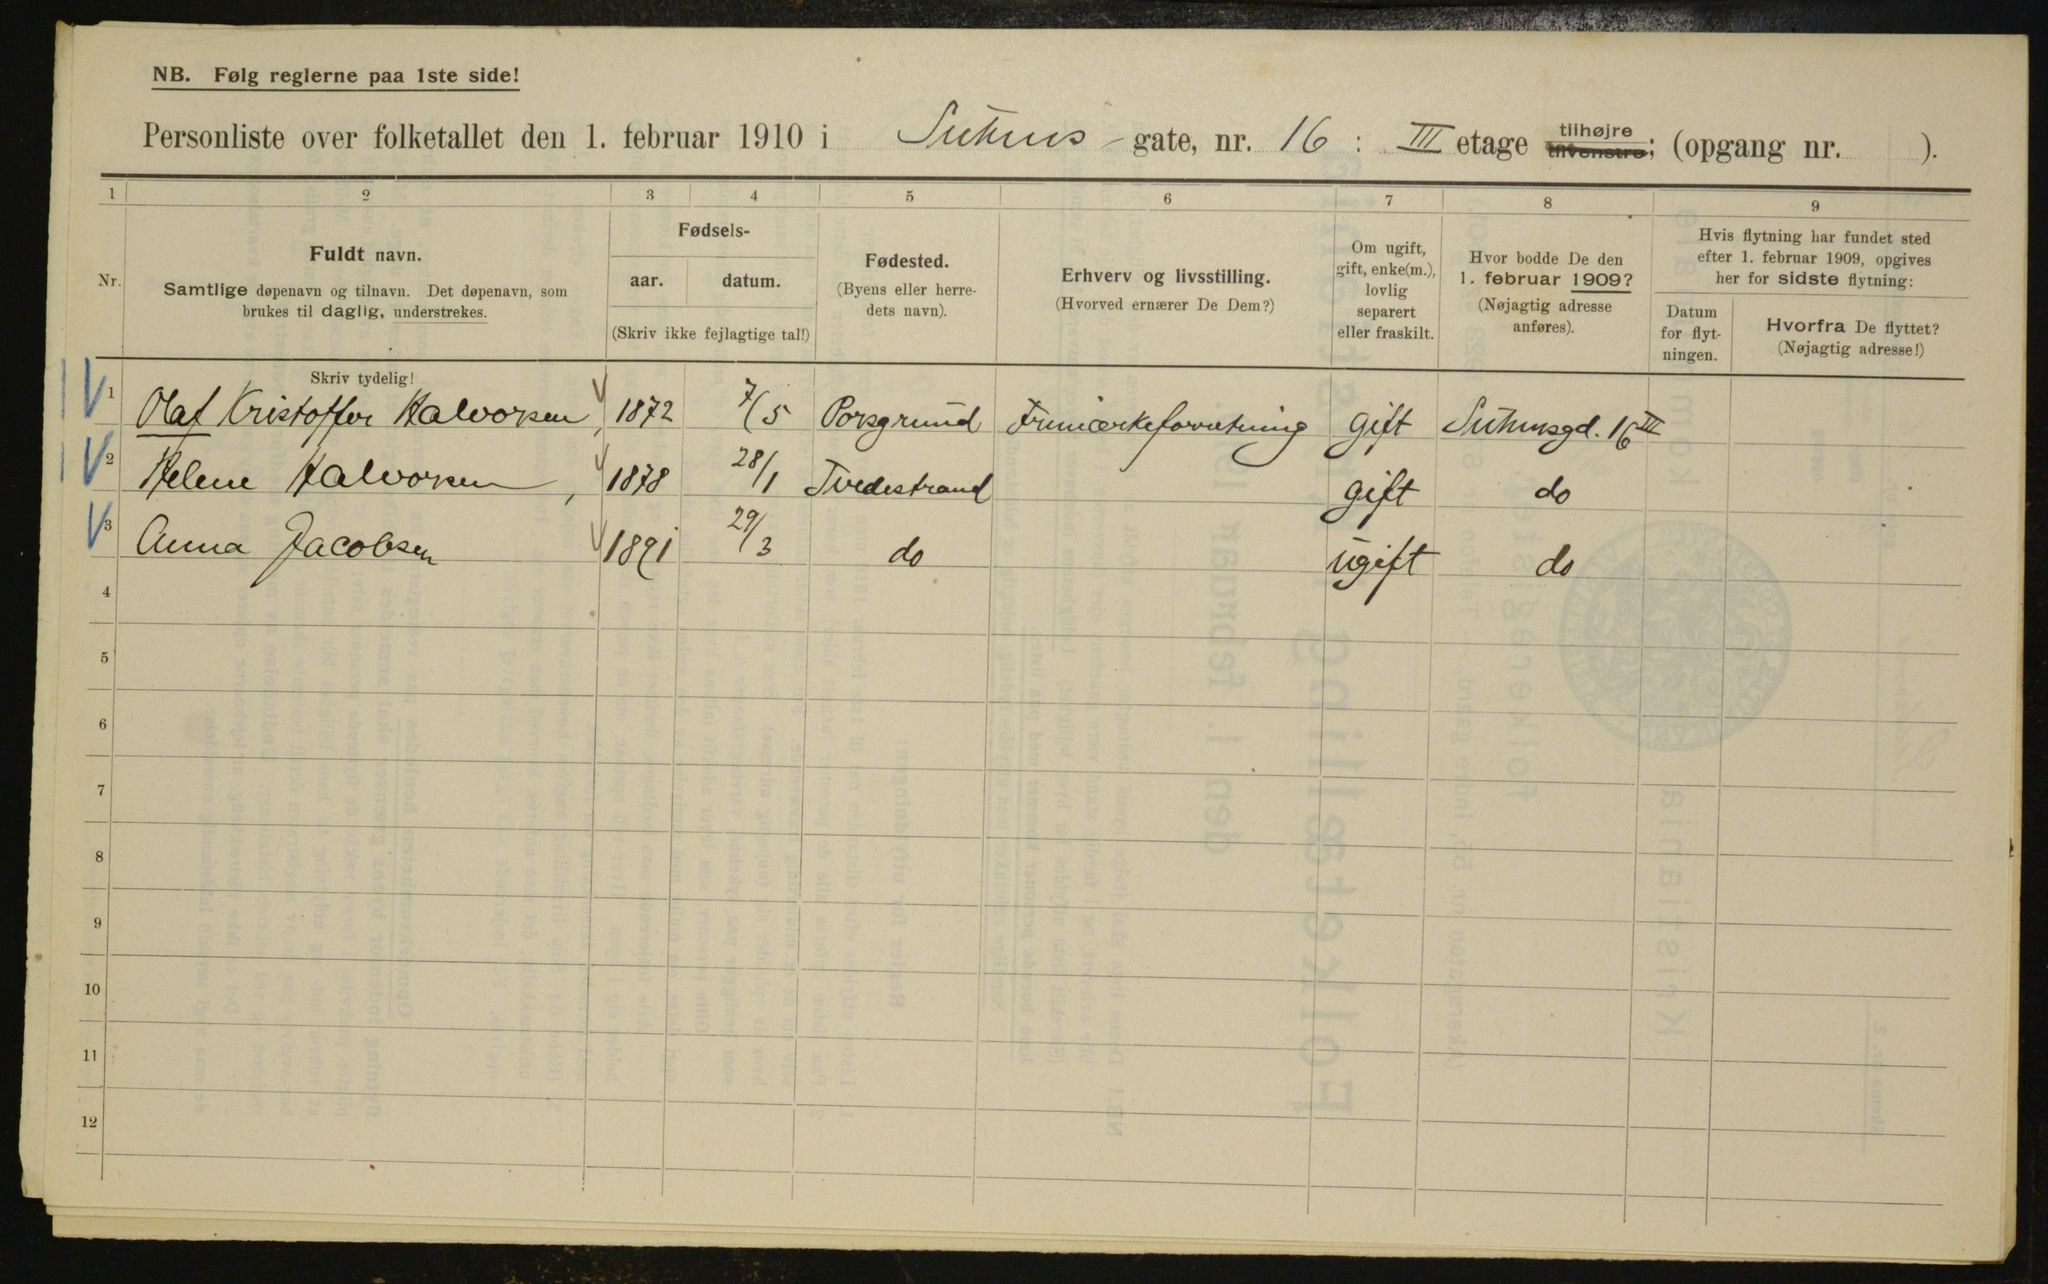 NB. Følg reglerne paa 1ste side!
Personliste over folketallet den 1. februar 1910 i Suhms gate, nr. 16 : III etage tilhøjre tilvenstre; (opgang nr. ).
1 2 3 4 5 6 7 8 9
Nr.
Fuldt navn.
Samtlige døpenavn og tilnavn. Det døpenavn, som
brukes til daglig, understrekes.
Skriv tydelig!
Fødsels-
aar. datum.
(Skriv ikke fejlagtige tal!)
Fødested.
(Byens eller herre-
dets navn).
Erhverv og livsstilling.
(Hvorved ernærer De Dem?)
Om ugift,
gift, enke(m.),
lovlig
separert
eller fraskilt.
Hvor bodde De den
1. februar 1909?
(Nøjagtig adresse
anføres).
Hvis flytning har fundet sted
efter 1. februar 1909, opgives
her for sidste flytning:
Datum
for flyt-
ningen.
Hvorfra De flyttet?
(Nøjagtig adresse!)
1 Olaf Kristoffer Halvorsen, 1872 7/5 Porsgrund Frimærkeforretning gift Suhmsgd. 16 III
2 Helene Halvorsen, 1878 28/1 Tvedestrand gift do
3 Anna Jacobsen 1891 29/3 do ugift do
4
5
6
7
8
9
10
11
12